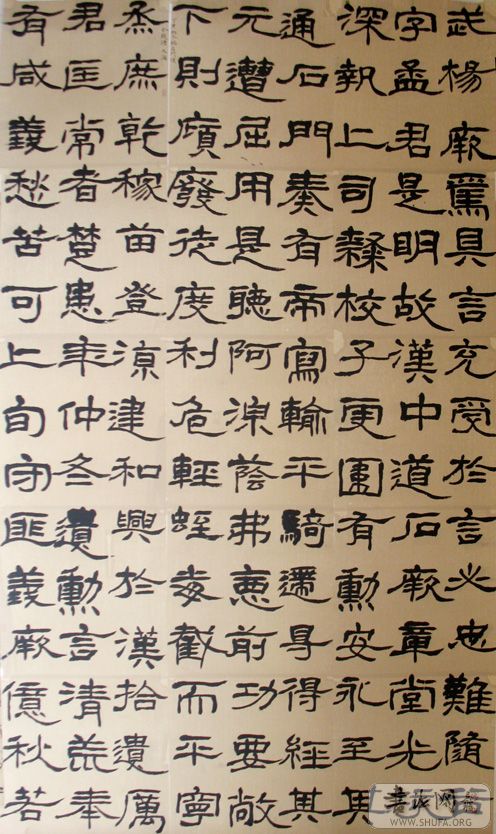 武楊厥具言充受於言必忠難隨
字孟君是明故漢中道石厥章堂光
深執上司隸校子更圍有勳安永至其
通石門奏有帝寫輸平騎尋得經其
元遭屈用是聽阿涼蔭弗前功要敞
下則廢徒度利危輕蛭毒勸而平寧
烝庶乾稼苗登涼建和興於漢拾遺厲
君匡常者楚患年仲冬遺勳言清荒奉
有咸義愁苦可上旬守匪義厥億秋若
书法网
WWW.SHUFA.ORG